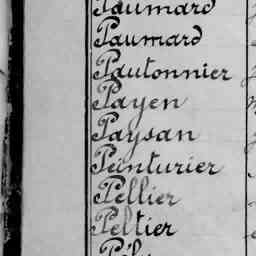 Paumard
Paumard
Pautonnier
Payen
Paysan
Peinturier
Pellier
Peltier